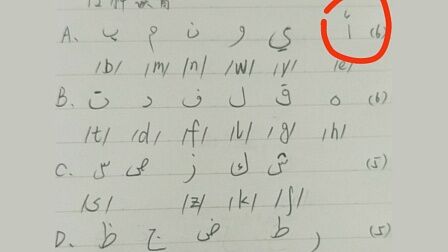 A. ب م ن و ي أ (6)
/b/ /m/ /n/ /w/ /y/ /e/
B. ت د ف ل ق ه (6)
/t/ /d/ /f/ /l/ /g/ /h/
C. س ص ز ك ش (5)
/s/ /z/ /k/ /ʃ/
D. ظ ج ض ط ر (5)